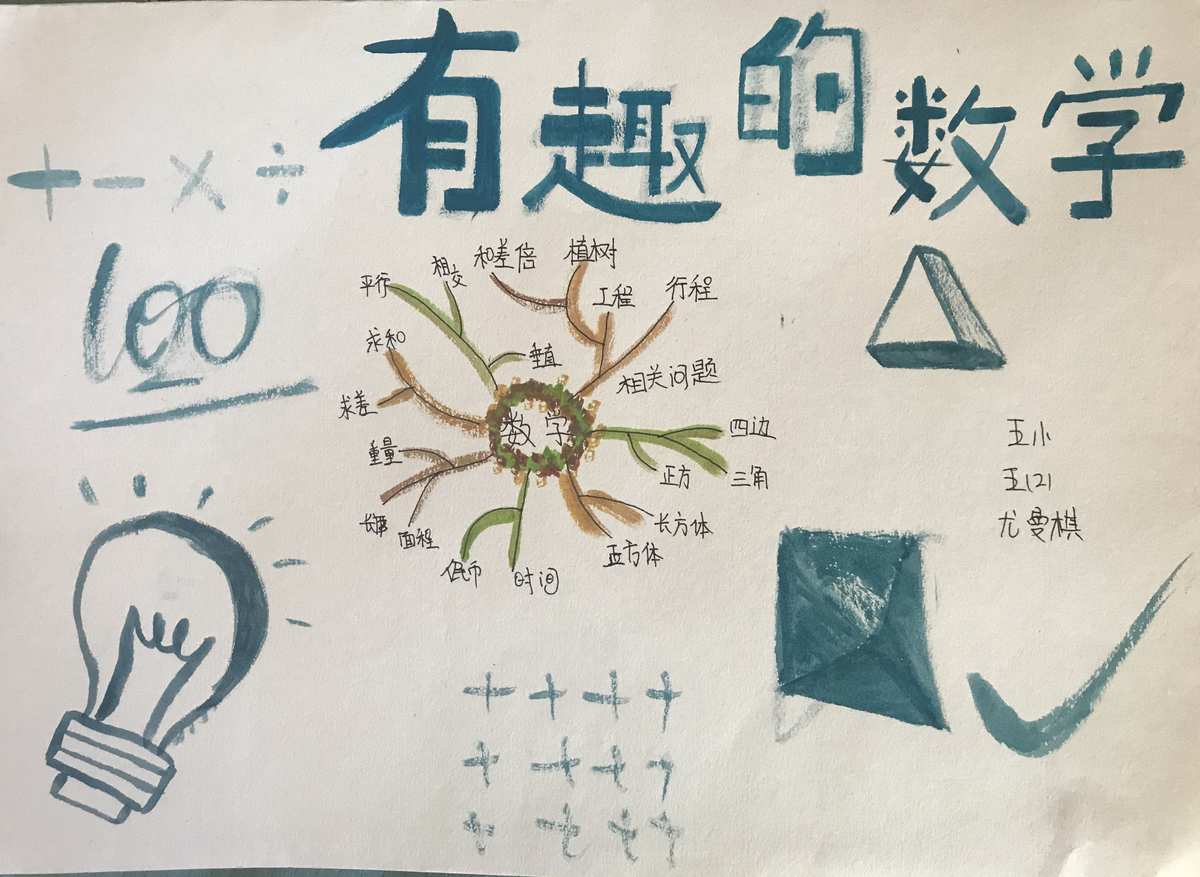 有趣的数学
+ − × ÷
100
和差倍
植树
相交
平行
工程
行程
求和
垂直
相关问题
求差
数学
四边
重量
正方
三角
面程
长方体
正方体
时间
五小
五(2)
尤曼棋
+ + + +
+ + + +
+ + + +